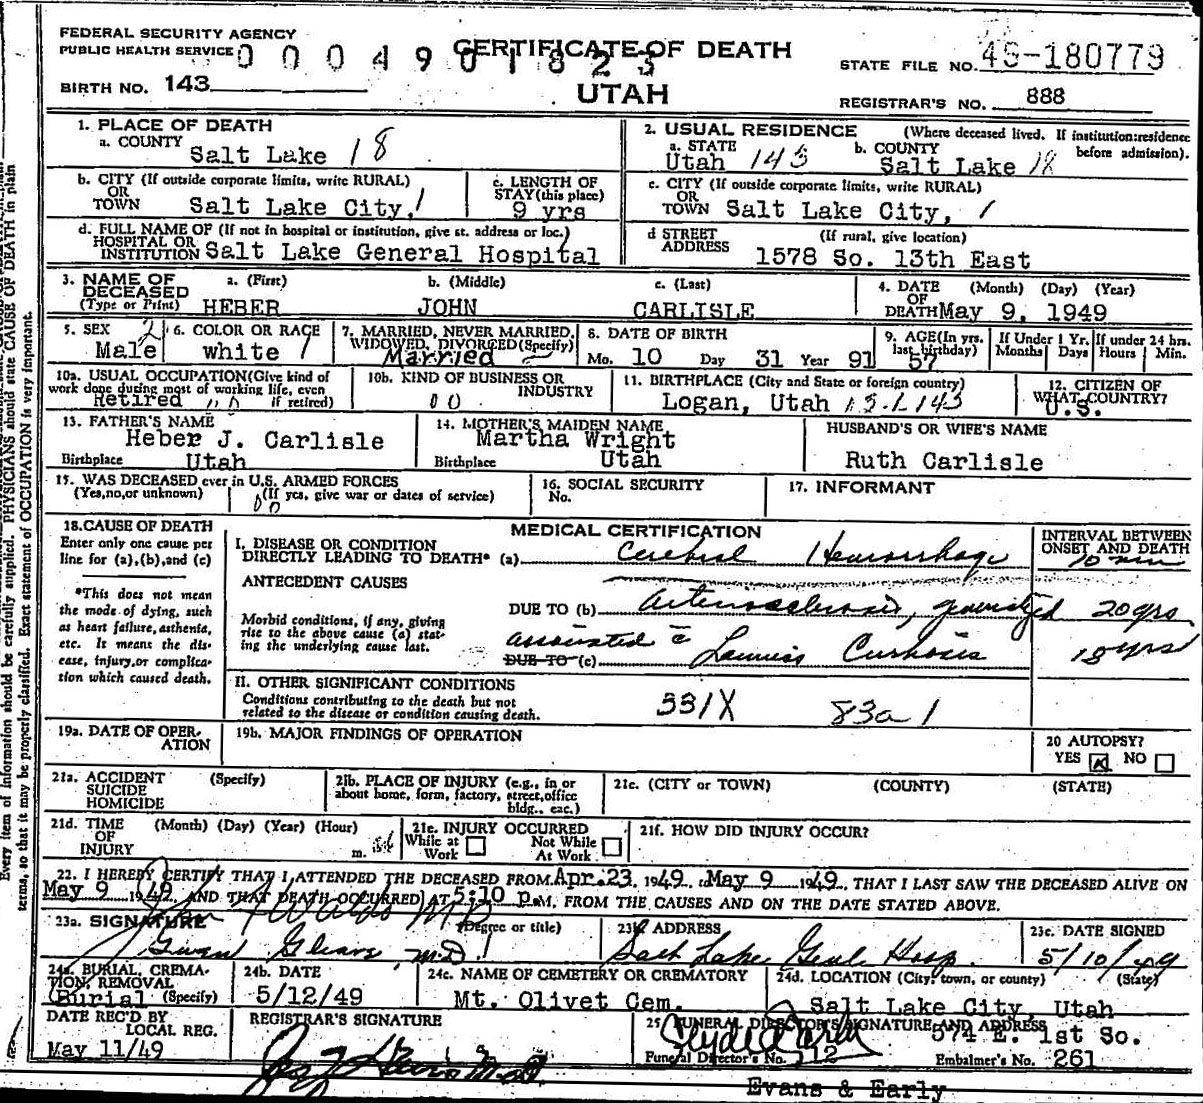 FEDERAL SECURITY AGENCY
PUBLIC HEALTH SERVICE
0 0 0 4 9 0 1 8 2 3
CERTIFICATE OF DEATH
UTAH
BIRTH NO. 143
STATE FILE NO. 49-180779
REGISTRAR'S NO. 888
1. PLACE OF DEATH
a. COUNTY Salt Lake 18
2. USUAL RESIDENCE (Where deceased lived. If institution: residence before admission).
a. STATE Utah 143
b. COUNTY Salt Lake 18
b. CITY (If outside corporate limits, write RURAL)
OR
TOWN Salt Lake City, 1
c. LENGTH OF
STAY (this place)
9 yrs
c. CITY (If outside corporate limits, write RURAL)
OR
TOWN Salt Lake City, 1
d. FULL NAME OF (If not in hospital or institution, give st. address or loc.)
HOSPITAL OR
INSTITUTION Salt Lake General Hospital
d STREET (If rural, give location)
ADDRESS 1578 So. 13th East
3. NAME OF DECEASED
(Type or Print)
a. (First) HEBER
b. (Middle) JOHN
c. (Last) CARLISLE
4. DATE (Month) (Day) (Year)
OF
DEATH May 9, 1949
5. SEX 2
Male
6. COLOR OR RACE
white 1
7. MARRIED, NEVER MARRIED,
WIDOWED, DIVORCED (Specify)
Married
8. DATE OF BIRTH
Mo. 10 Day 31 Year 91
9. AGE (In yrs.
last birthday)
57
If Under 1 Yr.
Months Days
If under 24 hrs.
Hours Min.
10a. USUAL OCCUPATION (Give kind of
work done during most of working life, even
if retired)
Retired
10b. KIND OF BUSINESS OR
INDUSTRY
11. BIRTHPLACE (City and State or foreign country)
Logan, Utah
12. CITIZEN OF
WHAT COUNTRY?
U.S.
13. FATHER'S NAME
Heber J. Carlisle
Birthplace Utah
14. MOTHER'S MAIDEN NAME
Martha Wright
Birthplace Utah
HUSBAND'S OR WIFE'S NAME
Ruth Carlisle
15. WAS DECEASED ever in U.S. ARMED FORCES
(Yes, no, or unknown) (If yes, give war or dates of service)
16. SOCIAL SECURITY
No.
17. INFORMANT
18. CAUSE OF DEATH
Enter only one cause per
line for (a), (b), and (c)
*This does not mean
the mode of dying, such
as heart failure, asthenia,
etc. It means the dis-
ease, injury, or complica-
tion which caused death.
MEDICAL CERTIFICATION
INTERVAL BETWEEN
ONSET AND DEATH
I. DISEASE OR CONDITION
DIRECTLY LEADING TO DEATH* (a) Cerebral Hemorrhage
ANTECEDENT CAUSES
Morbid conditions, if any, giving
rise to the above cause (a) stat-
ing the underlying cause last.
DUE TO (b) arteriosclerosis, generalized 20 yrs
associated c̄
DUE TO (c) Laennecs Cirrhosis
II. OTHER SIGNIFICANT CONDITIONS
Conditions contributing to the death but not
related to the disease or condition causing death.
331X 83a 1
19a. DATE OF OPER-
ATION
19b. MAJOR FINDINGS OF OPERATION
20 AUTOPSY?
YES NO
21a. ACCIDENT (Specify)
SUICIDE
HOMICIDE
21b. PLACE OF INJURY (e.g., in or
about home, form, factory, street, office
bldg., eac.)
21c. (CITY or TOWN) (COUNTY) (STATE)
21d. TIME (Month) (Day) (Year) (Hour)
OF
INJURY m.
21e. INJURY OCCURRED
While at Work
Not While At Work
21f. HOW DID INJURY OCCUR?
22. I HEREBY CERTIFY THAT I ATTENDED THE DECEASED FROM Apr. 23 1949 to May 9 1949, THAT I LAST SAW THE DECEASED ALIVE ON
May 9 1949 AND THAT DEATH OCCURRED AT 5:10 p.M. FROM THE CAUSES AND ON THE DATE STATED ABOVE.
23a. SIGNATURE (Degree or title)
M.D.
23b ADDRESS
Salt Lake Genl Hosp.
23c. DATE SIGNED
5/10/49
24a. BURIAL, CREMA-
TION, REMOVAL
(Specify)
Burial
24b. DATE
5/12/49
24c. NAME OF CEMETERY OR CREMATORY
Mt. Olivet Cem.
24d. LOCATION (City, town, or county) (State)
Salt Lake City, Utah
DATE REC'D BY
LOCAL REG.
May 11/49
REGISTRAR'S SIGNATURE
25. FUNERAL DIRECTOR'S SIGNATURE AND ADDRESS
574 E. 1st So.
Funeral Director's No. 712
Embalmer's No. 261
Evans & Early
Every item of information should be carefully supplied. PHYSICIANS should state CAUSE OF DEATH in plain
terms, so that it may be properly classified. Exact statement of OCCUPATION is very important.